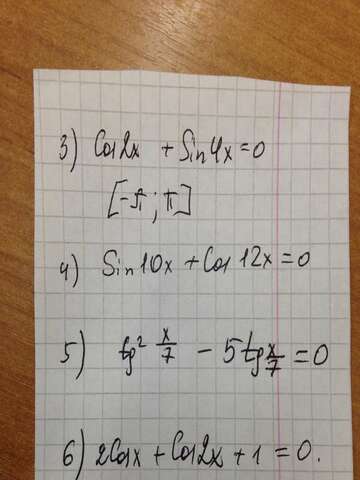 3) Cos2x + Sin4x=0
[-π; π]
4) Sin10x + Cos12x=0
5) tg² x/7 - 5tg x/7 =0
6) 2Cosx + Cos2x + 1 = 0.